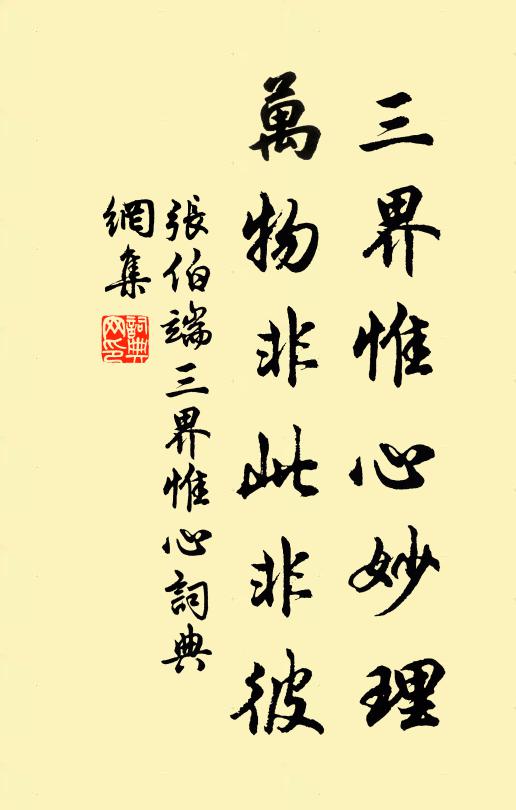 三界惟心妙理
萬物非此非彼
張伯端三界惟心詞典
網集
詞典
网印